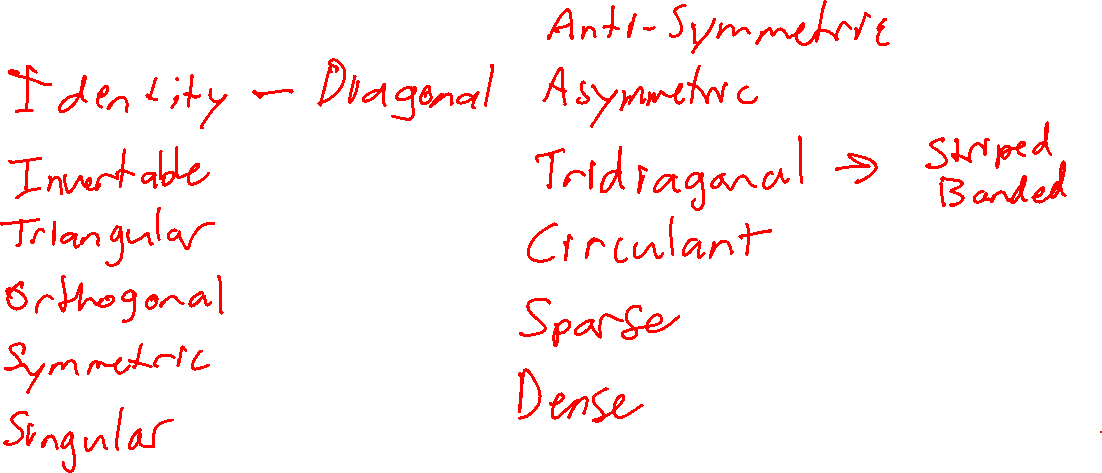 Identity – Diagonal
Invertable
Triangular
Orthogonal
Symmetric
Singular
Anti-Symmetric
Asymmetric
Tridiagonal → Striped
Banded
Circulant
Sparse
Dense